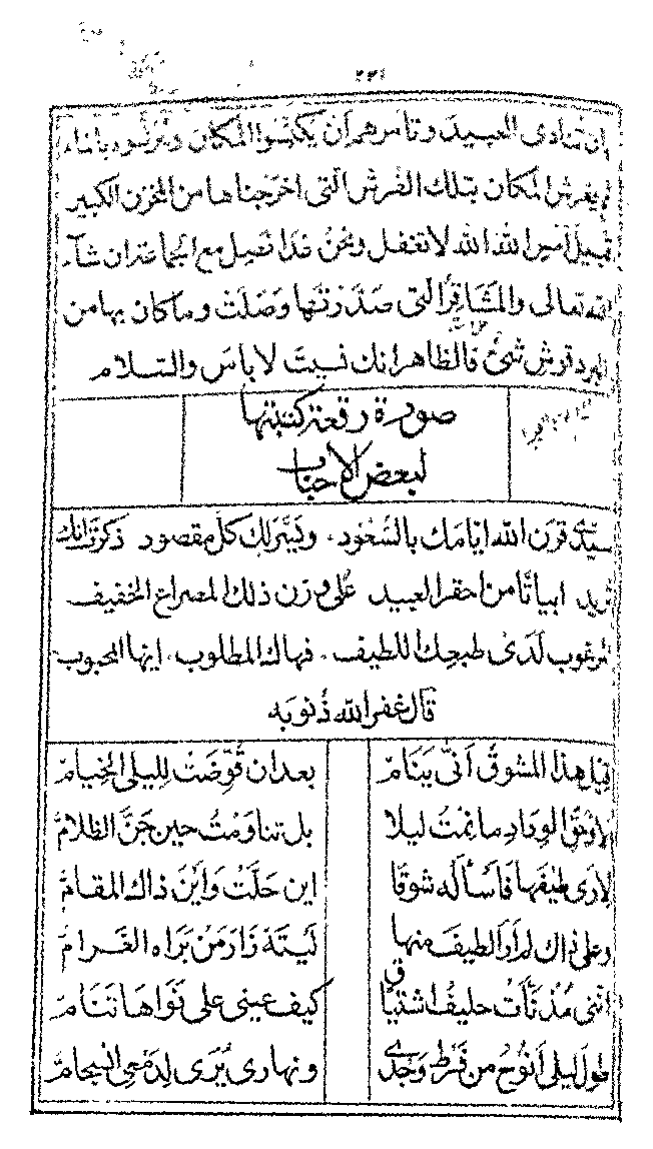 ٢٣٤
ان تنادى العبيد وتامرهم ان يكنسوا المكان وينزلوه بالماء
ثم يفرش المكان بتلك الفرش التى اخرجناها من المخزن الكبير
قبيل امس الله الله لا تغفل ونحن غدا نصل مع الجماعة ان شآء
الله تعالى والمشاقر التى صدرتها وصلت وما كان بها من
البردقوش شئ فالظاهر انك نسيت لا باس والسلام
صورة رقعة كتبتها
لبعض الاحباب
سيدى قرن الله ايامك بالسعود، ويسر لك كل مقصود ذكرت انك
تريد ابياتًا من احقر العبيد على وزن ذلك المصراع الخفيف
المرغوب لدى طبعك اللطيف، فهاك المطلوب، ايها المحبوب
قال غفر الله ذنوبه
قيل هذا المشوق أنّى ينام بعد ان قُوّضت لليلى الخيام
لا وحق الوداد ما نمت ليلا بل تناومت حين جنّ الظلام
لارى طيفها فأسأله شوقا اين حلّت وأين ذاك المقام
وعلى ذاك لم أر الطيف منها ليته زار من براه الغرام
اننى مذ نأت حليف اشتياق كيف عينى على نواها تنام
طول ليلى أنوح من فرط وجدى ونهارى يُرى لدمعى انسجام